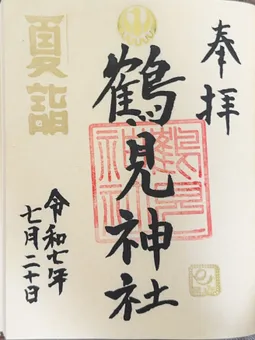 奉拝
鶴見神社
夏詣
令和七年
七月二十日
鶴見
神社